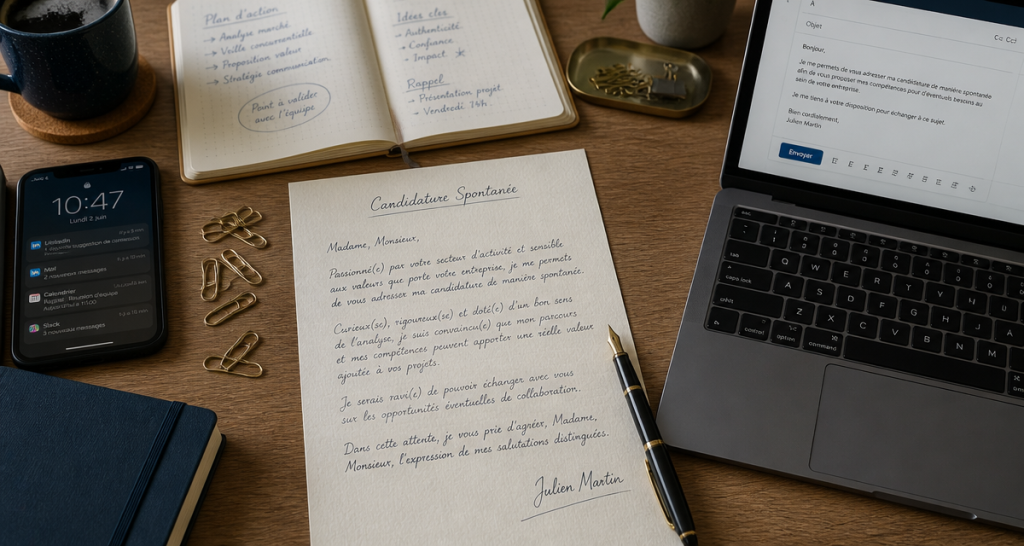 Plan d'action
→ Analyse marché
→ Veille concurrentielle
→ Proposition valeur
→ Stratégie communication
Point à valider
avec l'équipe
Idées clés
→ Authenticité
→ Confiance
→ Impact
Rappel
→ Présentation projet
→ Vendredi 14h.
10:47
Lundi 2 juin
LinkedIn
2 nouveaux messages
Calendrier
Slack
3 nouveaux messages
Candidature Spontanée
Madame, Monsieur,
Passionné(e) par votre secteur d'activité et sensible
aux valeurs que porte votre entreprise, je me permets
de vous adresser ma candidature de manière spontanée.
Curieux(se), rigoureux(se) et doté(e) d'un bon sens
de l'analyse, je suis convaincu(e) que mon parcours
et mes compétences peuvent apporter une réelle valeur
ajoutée à vos projets.
Je serais ravi(e) de pouvoir échanger avec vous
sur les opportunités éventuelles de collaboration.
Dans cette attente, je vous prie d'agréer, Madame,
Monsieur, l'expression de mes salutations distinguées.
Julien Martin
À
Objet
Bonjour,
Je me permets de vous adresser ma candidature de manière spontanée
afin de vous proposer mes compétences pour d'éventuels besoins au
sein de votre entreprise.
Je me tiens à votre disposition pour échanger à ce sujet.
Bien cordialement,
Julien Martin
Envoyer
tab
Q W E R T Y U I
caps lock
A S D F G H J
shift
Z X C V B N M
control option command